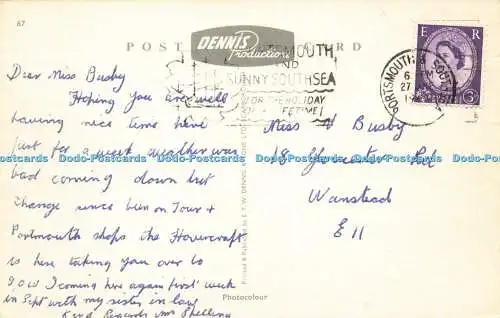 67
POST CARD
DENNIS
Productions
PORTSMOUTH
AND
SUNNY SOUTHSEA
FOR THE HOLIDAY
OF A LIFETIME!
PORTSMOUTH & SOUTHSEA
6 PM
27
19
E R
3D
Dear Miss Busby
Hoping you are well
having nice time here
just for a week weather was
bad coming down but
change since been on Tour +
Portmouth shops the Hovercraft
is here taking you over to
I.O.W I coming here again first week
in Sept with my sister in law
Kind Regards Mrs
Miss Busby
18 Gloucester Rd
Wanstead
E 11
Printed & Published by E.T.W. DENNIS
Photocolour
Dodo-Postcards Dodo-Postcards Dodo-Postcards Dodo-Postcards Dodo-Postcards Dodo-Postcards